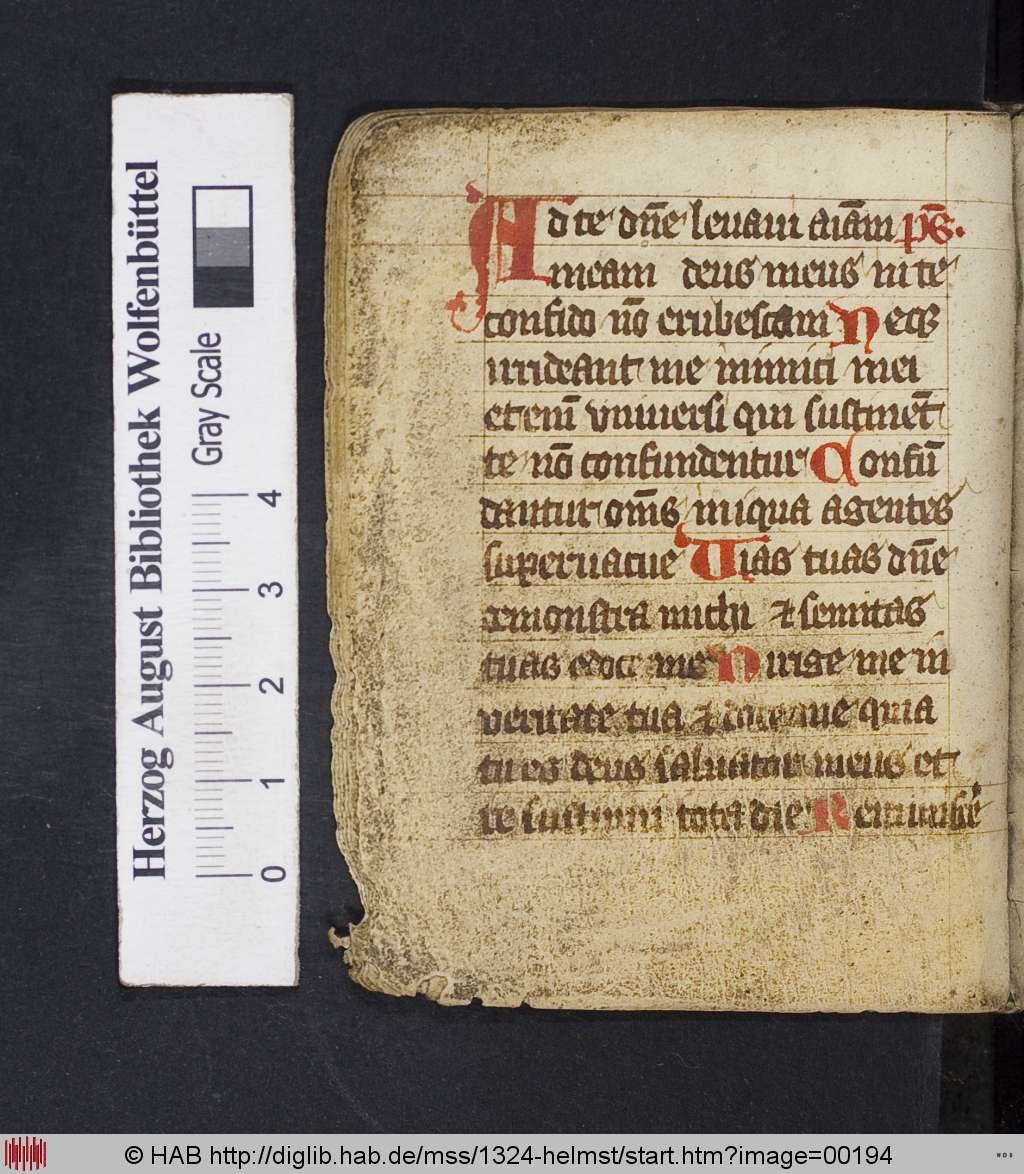 Ad te dn̄e leuaui aīam ps̄.
meam deus meus in te
confido nō erubescam Neq3
irrideant me inimici mei
etenī vniuersi qui sustinēt
te nō confundentur Confū
dantur om̄s iniqua agentes
superuacue Uias tuas dn̄e
demonstra michi ⁊ semitas
tuas edoce me Dirige me in
veritate tua ⁊ doce me quia
tu es deus saluator meus et
te sustinui tota die
Herzog August Bibliothek Wolfenbüttel
Gray Scale
0 1 2 3 4
© HAB http://diglib.hab.de/mss/1324-helmst/start.htm?image=00194
WDB